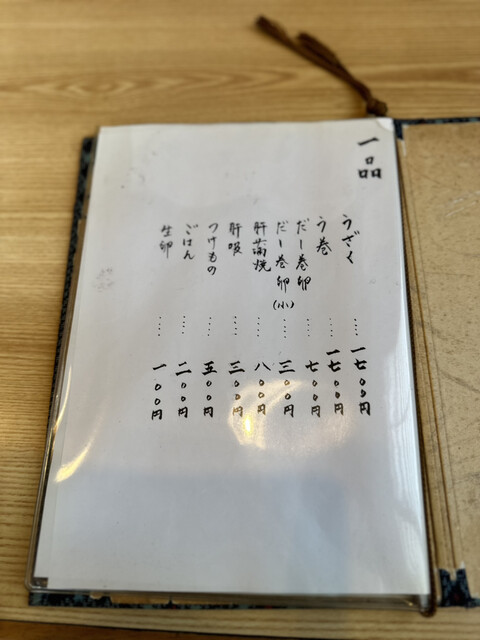 一品
うざく‥‥一七〇〇円
う巻‥‥一七〇〇円
だし巻卵‥‥七〇〇円
だし巻卵(小)‥‥三〇〇円
肝蒲焼‥‥八〇〇円
肝吸‥‥三〇〇円
つけもの‥‥五〇〇円
ごはん‥‥二〇〇円
生卵‥‥一〇〇円